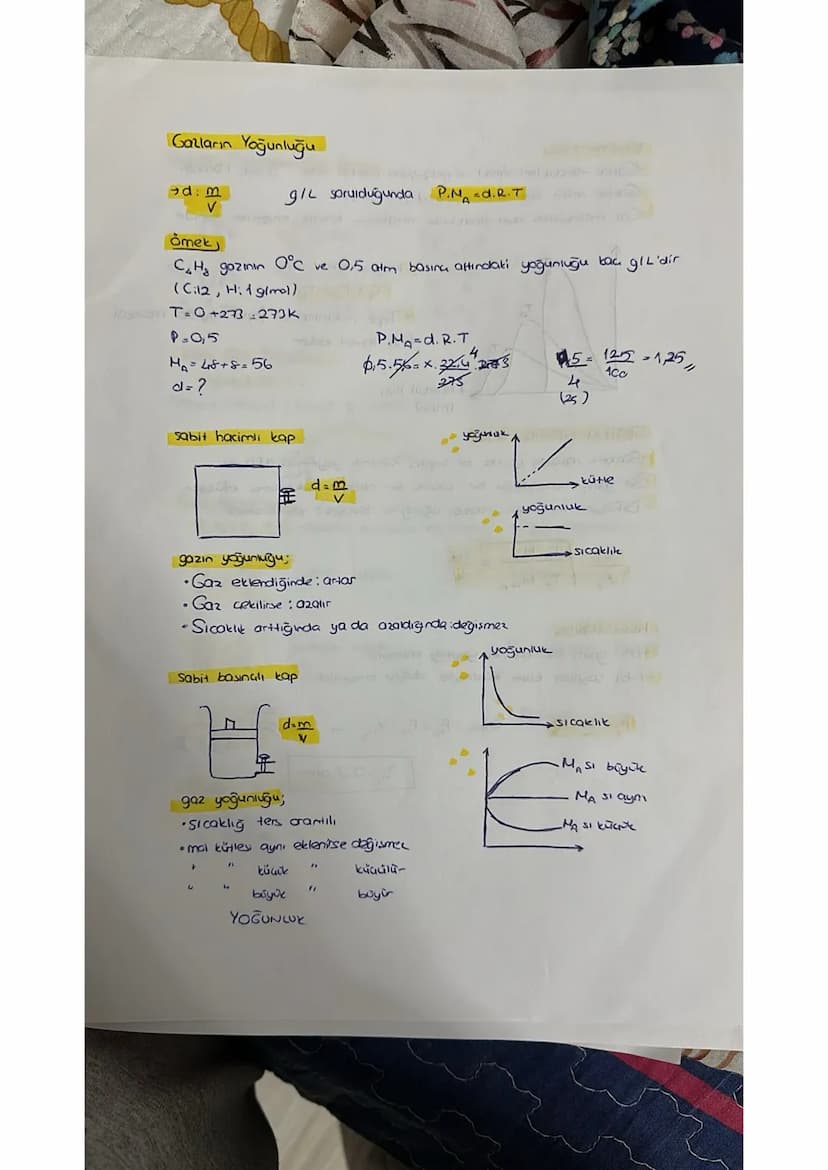 Gazların Yoğunluğu
→ d: m/V g/L sorulduğunda P.MA = d.R.T
Örnek;
C4H8 gazının 0°C ve 0,5 atm basınç altındaki yoğunluğu kaç g/L'dir
(C:12, H:1 g/mol)
T = 0 + 273 = 273 K
P = 0,5 P.MA = d.R.T
MA = 48 + 8 = 56
d = ?
sabit hacimli kap
d = m/V
yoğunluk
kütle
yoğunluk
sıcaklık
gazın yoğunluğu;
• Gaz eklendiğinde : artar
• Gaz çekilirse : azalır
• Sıcaklık arttığında ya da azaldığında : değişmez
sabit basınçlı kap
d = m/V
yoğunluk
sıcaklık
MA sı büyük
MA sı aynı
MA sı küçük
gaz yoğunluğu;
• sıcaklığ ters orantılı
• mol kütlesi aynı eklenirse değişmez
" " küçük " küçülür
" " büyük " büyür
YOĞUNLUK